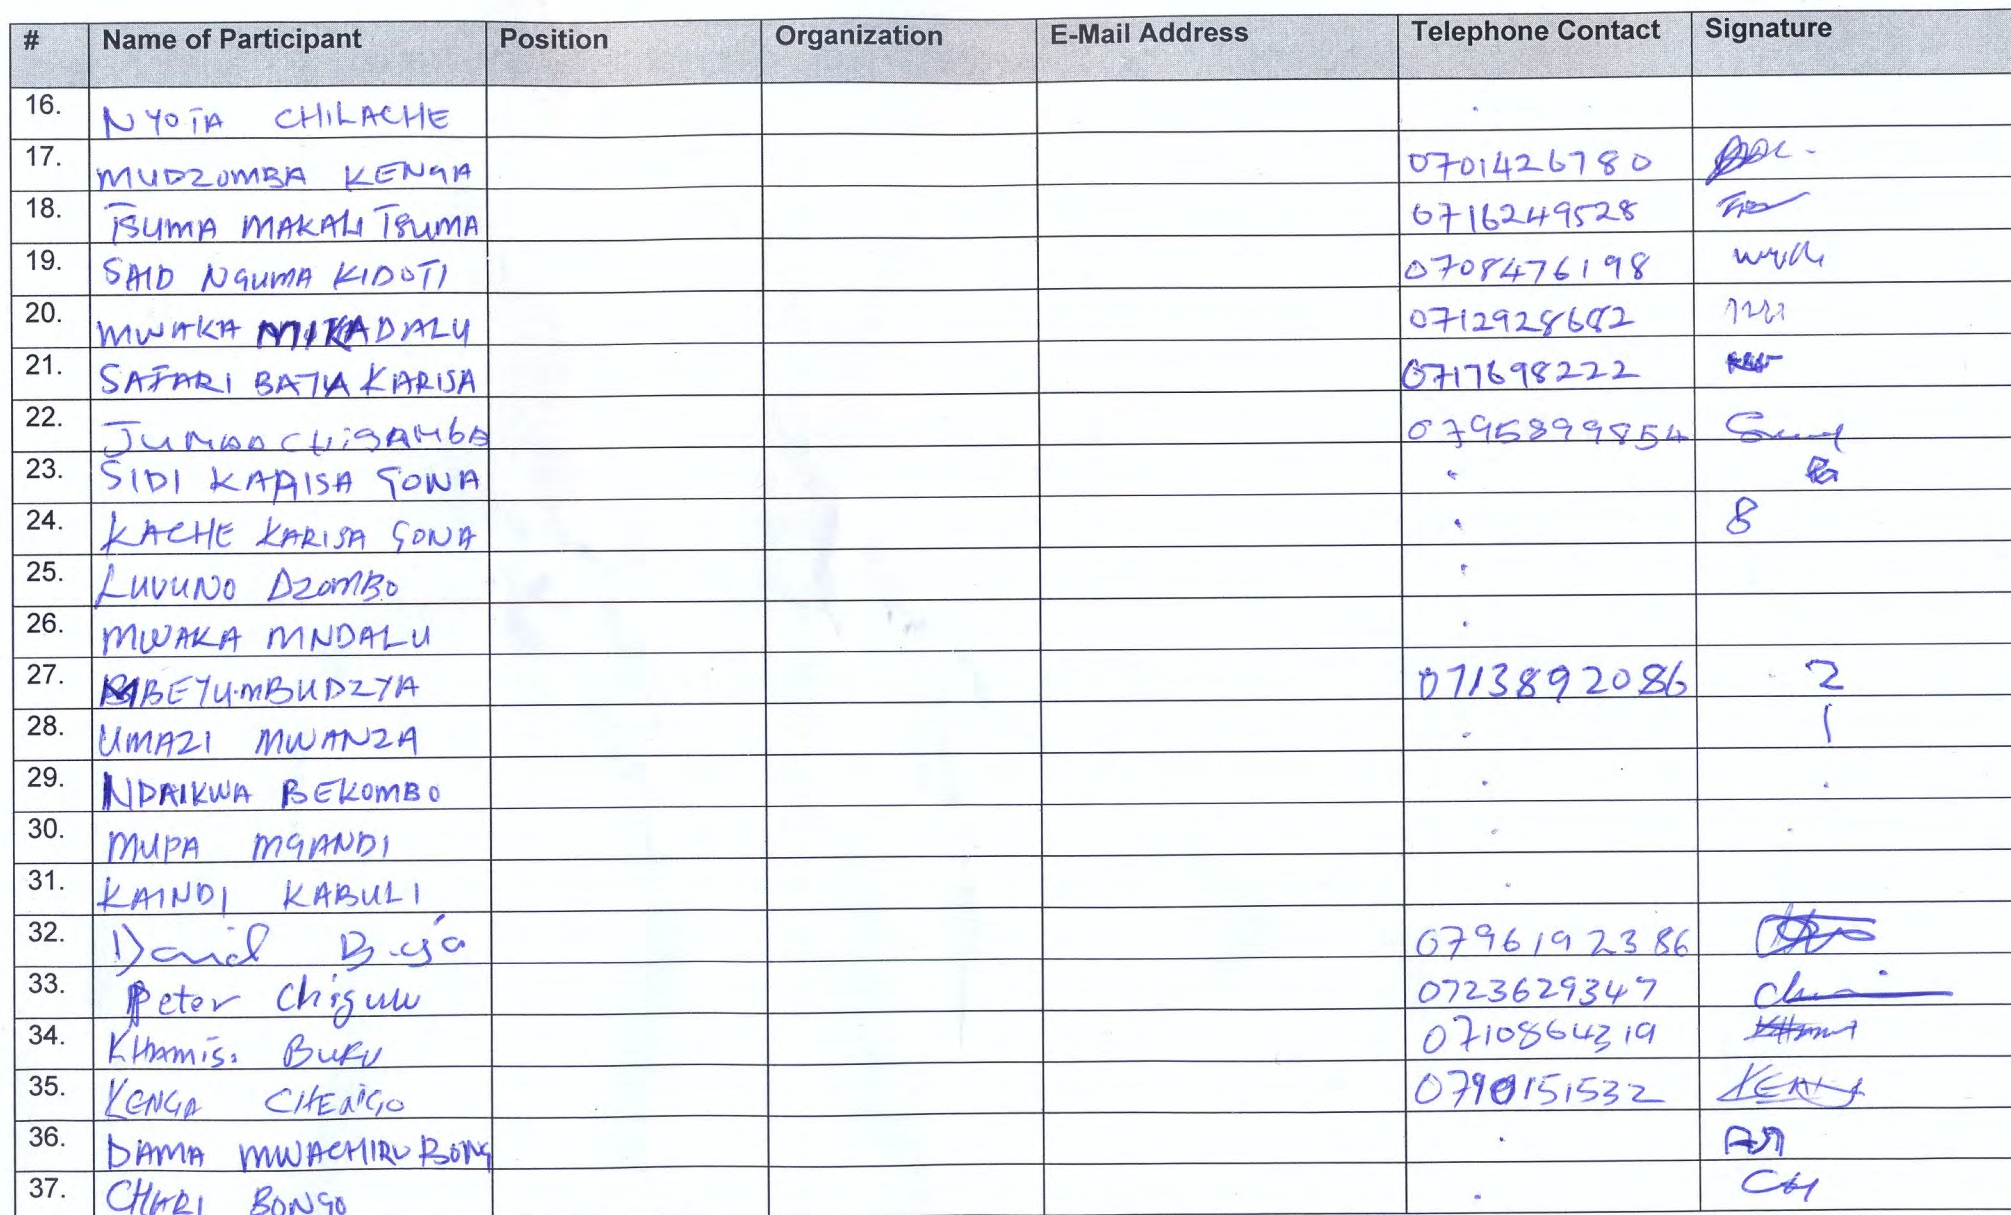 # Name of Participant Position Organization E-Mail Address Telephone Contact Signature
16. NYOTA CHILACHE
17. MUDZOMBA KENGA 0701426780
18. TSUMA MAKALI TSUMA 0716249528
19. SAID NGUMA KIDOTI 0708476198
20. MWAKA DALU 0712928682
21. SAFARI BATYA KARISA 0717698222
22. JUMAA CHIGAMBA 0795899854
23. SIDI KARISA GONA
24. KACHE KARISA GONA 8
25. LUVUNO DZOMBO
26. MWAKA MNDALU
27. MBEYU.MBUDZYA 0713892086 2
28. UMAZI MWANZA 1
29. NDAIKWA BEKOMBO
30. MUPA MGANDI
31. KAINDI KABULI
32. David 0796192386
33. Peter Chigulu 0723629347
34. KHAMIS. 0710864319
35. KENGA CHENGO 0790151532 KENGA
36. DAMA MWACHIRU BONG
37. CHARI BONGO CH